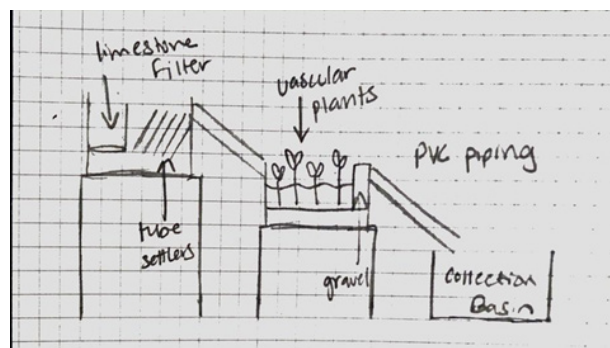 limestone
Filter
vascular
plants
PVC piping
tube
settlers
gravel
Collection
Basin